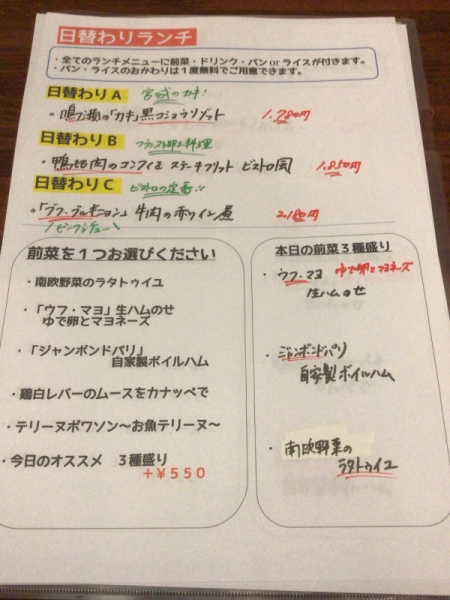 日替わりランチ
・全てのランチメニューに前菜・ドリンク・パン or ライスが付きます。
・パン・ライスのおかわりは１度無料でご用意できます。
日替わり A 宮城のカキ!
の「カキ」黒コショウリゾット 1,780円
日替わり B フランス郷土料理
・鴨もも肉のコンフィ ステークフリット ビストロ風 1,850円
日替わり C ビストロの定番!!
・「ブフ・ブルギニョン」牛肉の赤ワイン煮
ビーフシチュー
前菜を１つお選びください
・南欧野菜のラタトゥイユ
・「ウフ・マヨ」生ハムのせ
ゆで卵とマヨネーズ
・「ジャンボンドパリ」
自家製ボイルハム
・鶏白レバーのムースをカナッペで
・テリーヌポワソン～お魚テリーヌ～
・今日のオススメ ３種盛り
＋￥５５０
本日の前菜３種盛り
・ウフ・マヨ ゆで卵とマヨネーズ
生ハムのせ
・ジャンボンドパリ
自家製ボイルハム
・南欧野菜の
ラタトゥイユ